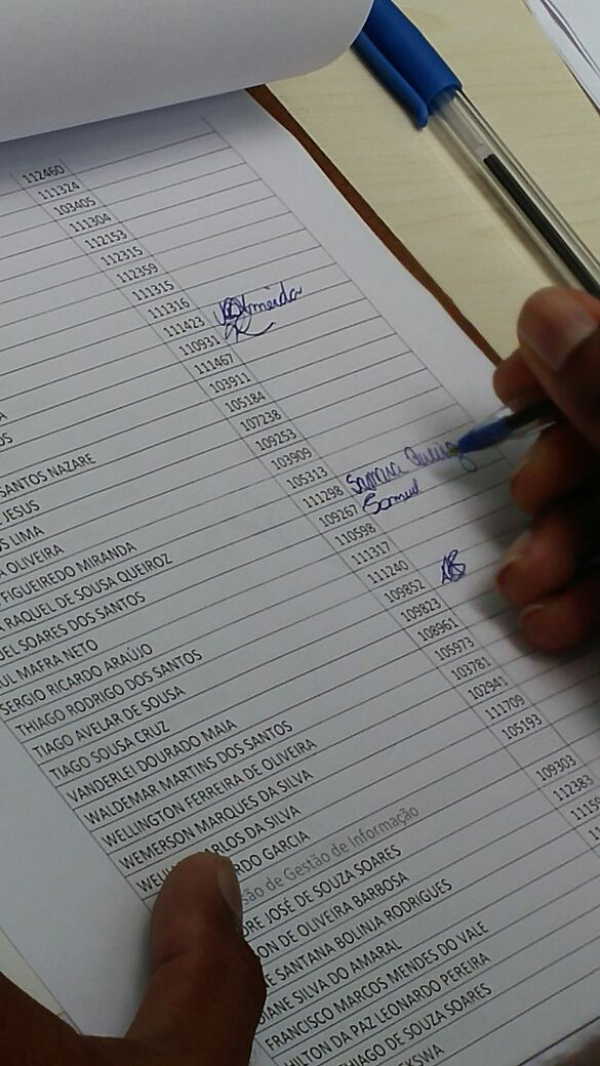 112460
111324
103405
111304
112153
112315
112359
111315
111316
111423 Almeida
110931
111467
103911
SANTOS NAZARE 105184
JESUS 107238
LIMA 109253
OLIVEIRA 103909
FIGUEIREDO MIRANDA 105313
RAQUEL DE SOUSA QUEIROZ 111298 Queiroz
UEL SOARES DOS SANTOS 109267 Samuel
UL MAFRA NETO 110598
SERGIO RICARDO ARAÚJO 111317
THIAGO RODRIGO DOS SANTOS 111240
TIAGO AVELAR DE SOUSA 109852
TIAGO SOUSA CRUZ 109823
VANDERLEI DOURADO MAIA 108961
WALDEMAR MARTINS DOS SANTOS 105973
WELLINGTON FERREIRA DE OLIVEIRA 103781
WEMERSON MARQUES DA SILVA 102941
ARLOS DA SILVA 111709
RDO GARCIA 105193
são de Gestão de Informação
DRE JOSÉ DE SOUZA SOARES 109303
ON DE OLIVEIRA BARBOSA 112383
E SANTANA BOLINJA RODRIGUES
DIANE SILVA DO AMARAL
FRANCISCO MARCOS MENDES DO VALE
HILTON DA PAZ LEONARDO PEREIRA
THIAGO DE SOUZA SOARES
EKSWA